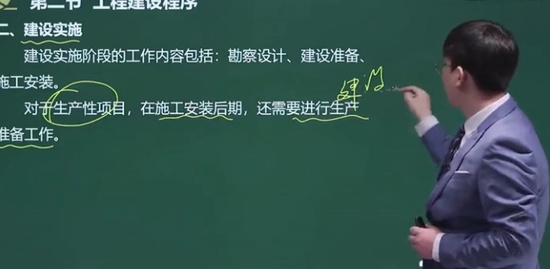 第二节 工程建设程序
二、建设实施
建设实施阶段的工作内容包括：勘察设计、建设准备、
施工安装。
建设
对于生产性项目，在施工安装后期，还需要进行生产
准备工作。